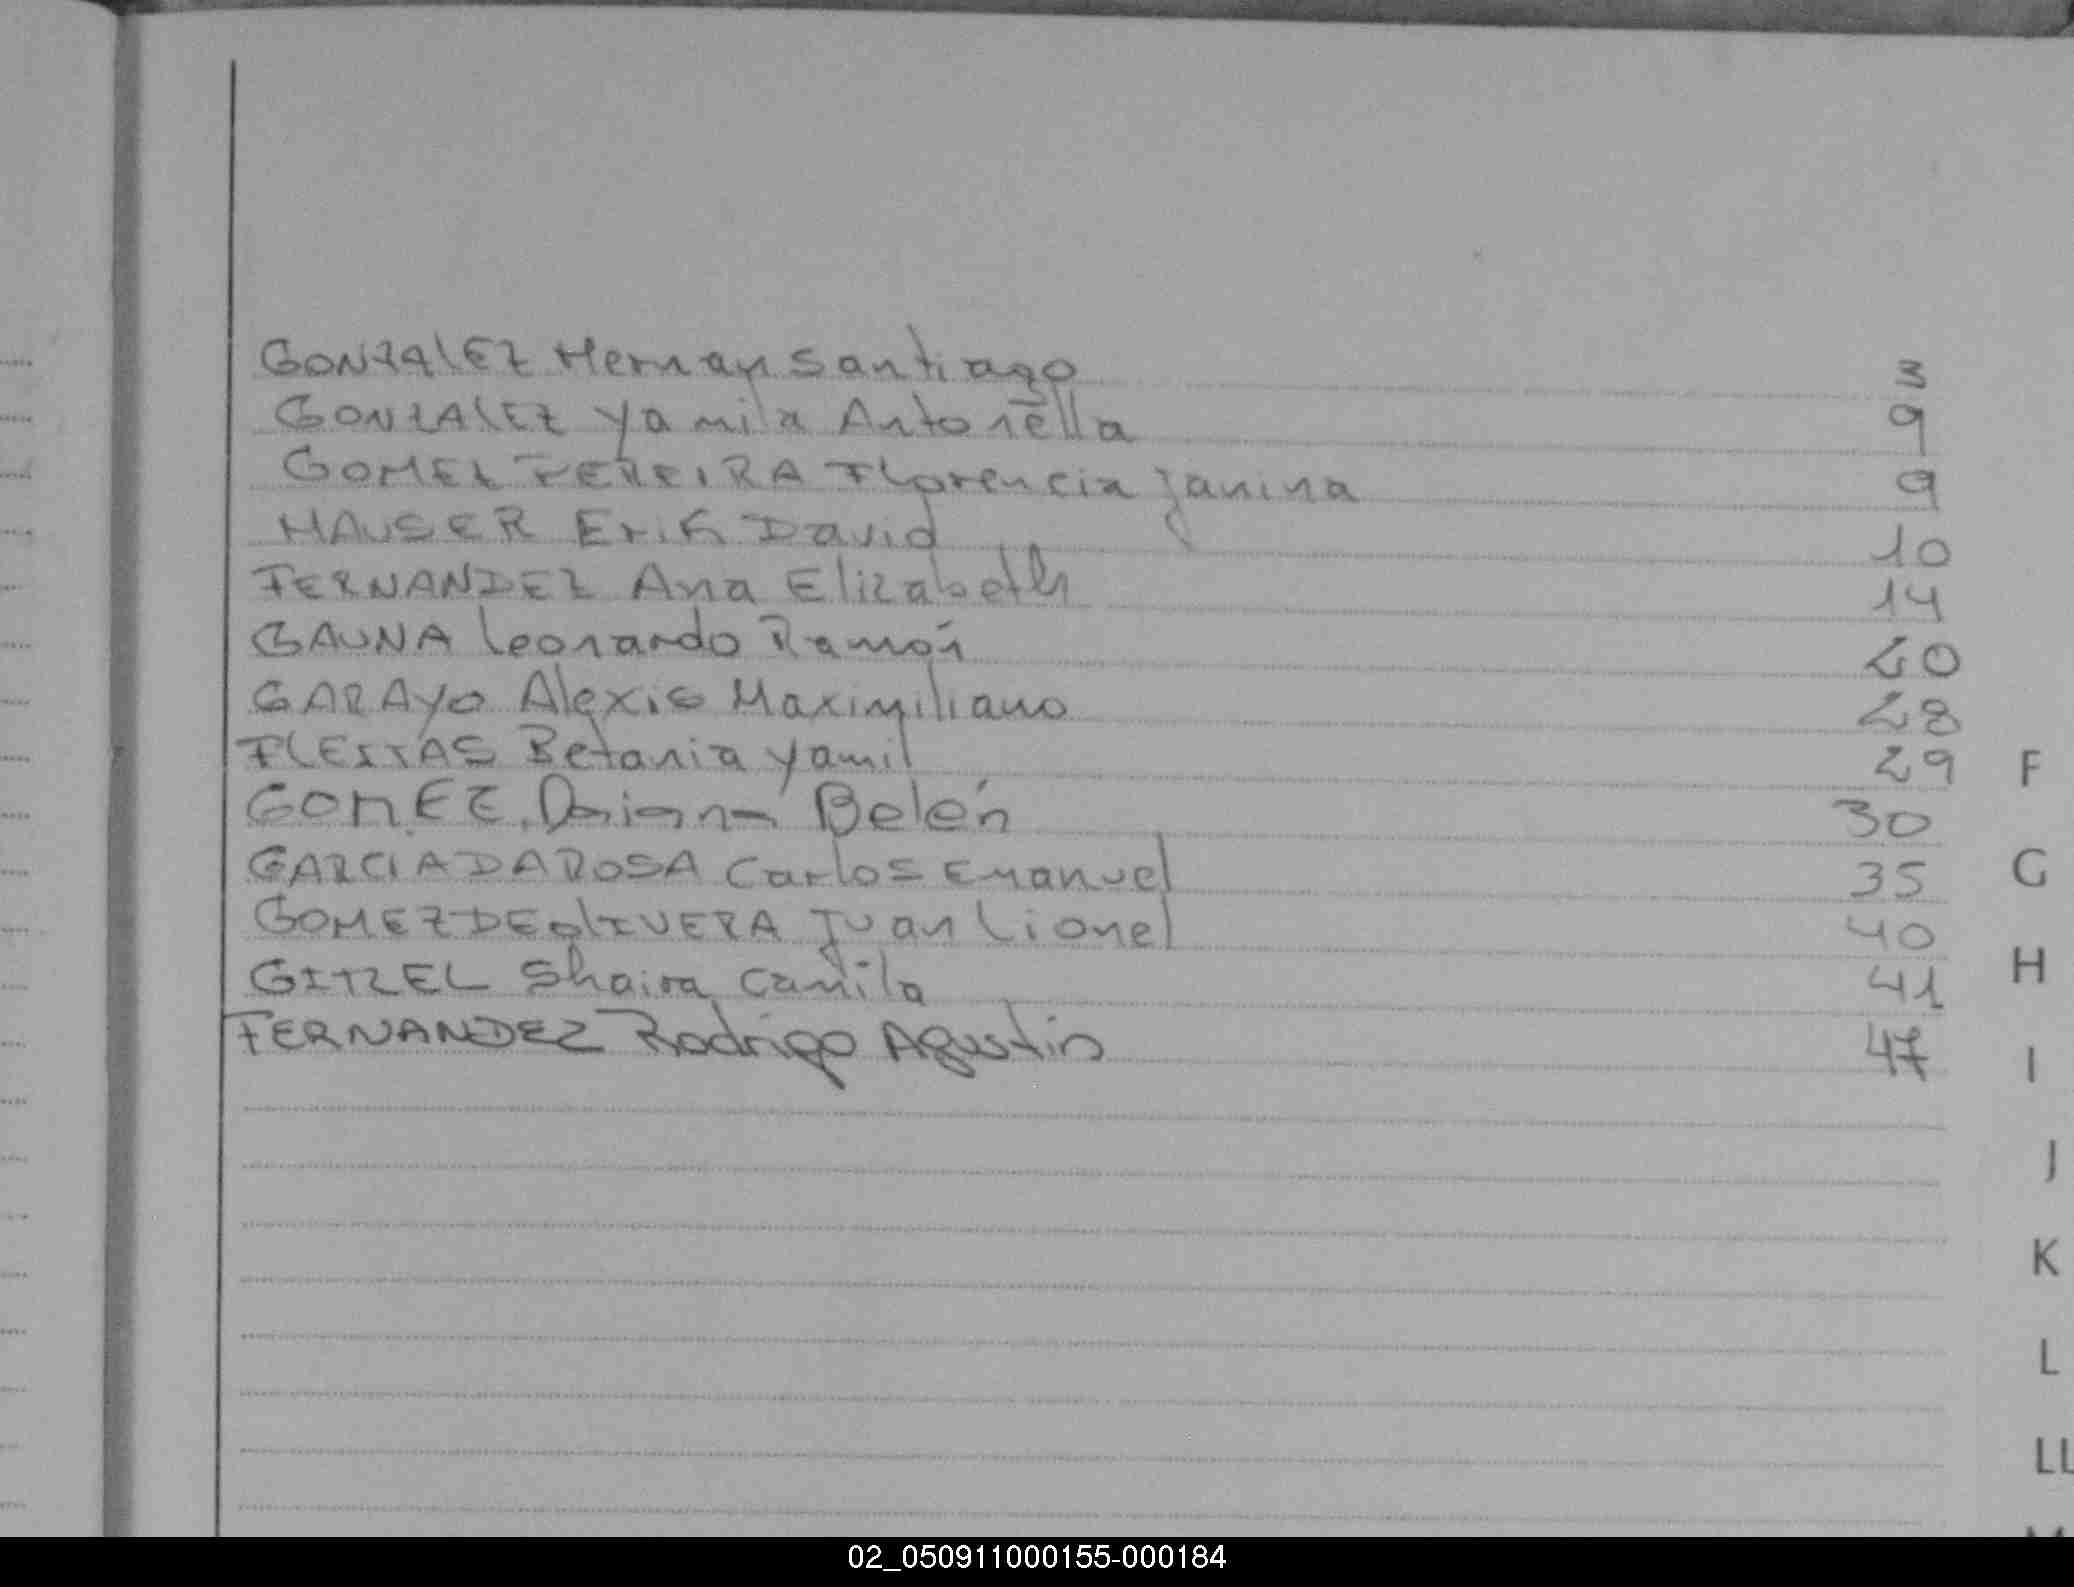 GONZALEZ Hernan Santiago 3
GONZALEZ Yamila Antonella 9
GOMEZ FERREIRA Florencia Janina 9
HAUSER Erik David 10
FERNANDEZ Ana Elizabeth 14
GAUNA Leonardo Ramón 20
GARAYO Alexis Maximiliano 28
FLEITAS Betania Yamil 29
F
GOMEZ Daiana Belén 30
GARCIA DA ROSA Carlos Emanuel 35
G
GOMEZ DE OLIVERA Juan Lionel 40
H
GITZEL Shaira Camila 41
FERNANDEZ Rodrigo Agustin 47
I
J
K
L
LL
02_050911000155-000184